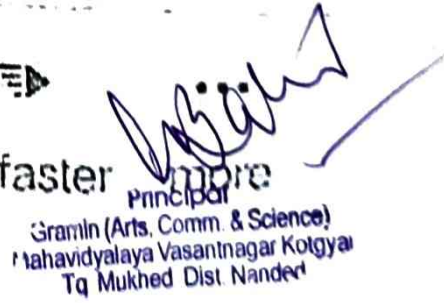 faster more
Principal
Gramin (Arts, Comm. & Science)
Mahavidyalaya Vasantnagar Kotgyal
Tq Mukhed Dist. Nanded